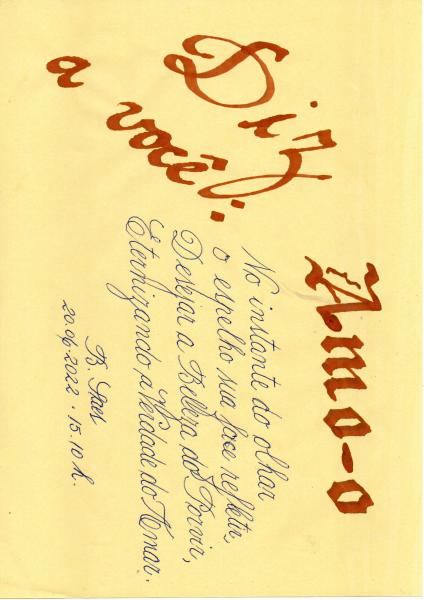 Diz
a você:
Amo-o
No instante do olhar
o espelho sua face refletir,
Desejar a Beleza do Porvir,
Eternizando, a Verdade, do Amar.
B.
20.06.2022 - 15.10 h.